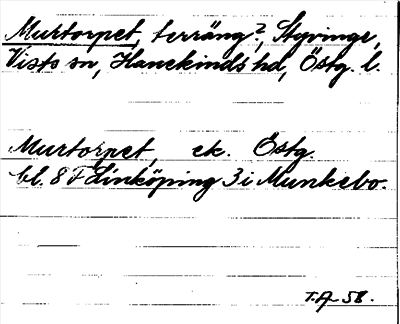 Murtorpet, terräng?, Styvinge,
Vists sn, Hanekinds hd, Östg. l.
Murtorpet, ek. Östg.
bl. 8 F Linköping 3 i Munkebo.
T.A. 58.